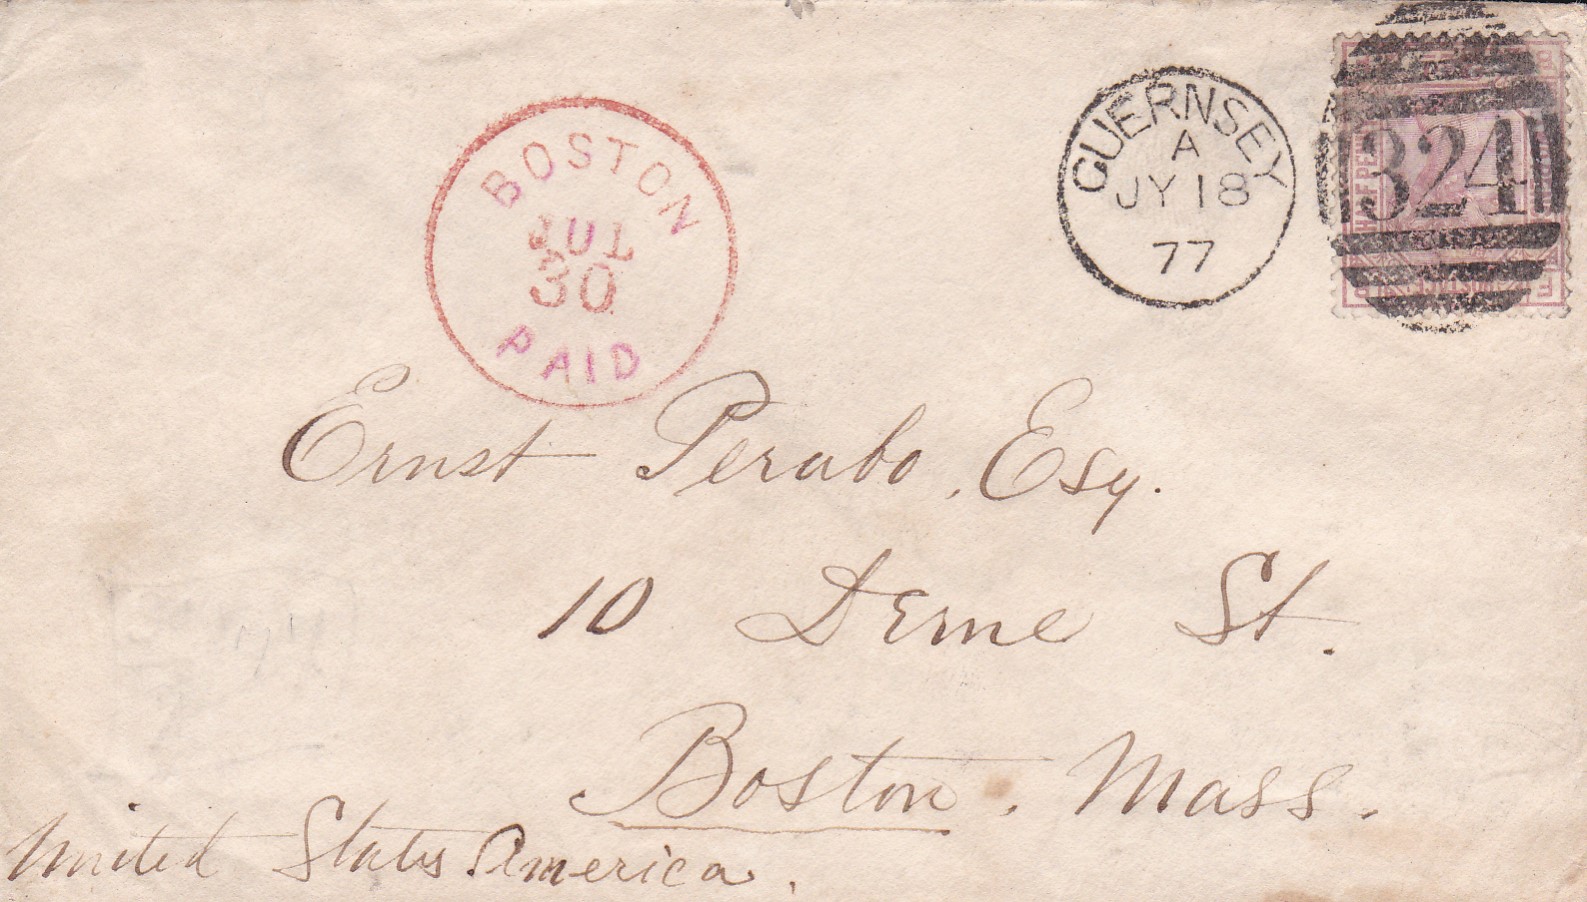 BOSTON
JUL
30
PAID
GUERNSEY
A
JY 18
77
324
HALFPE
Ernst Perabo, Esq.
10 Derne St.
Boston, Mass.
United States America.